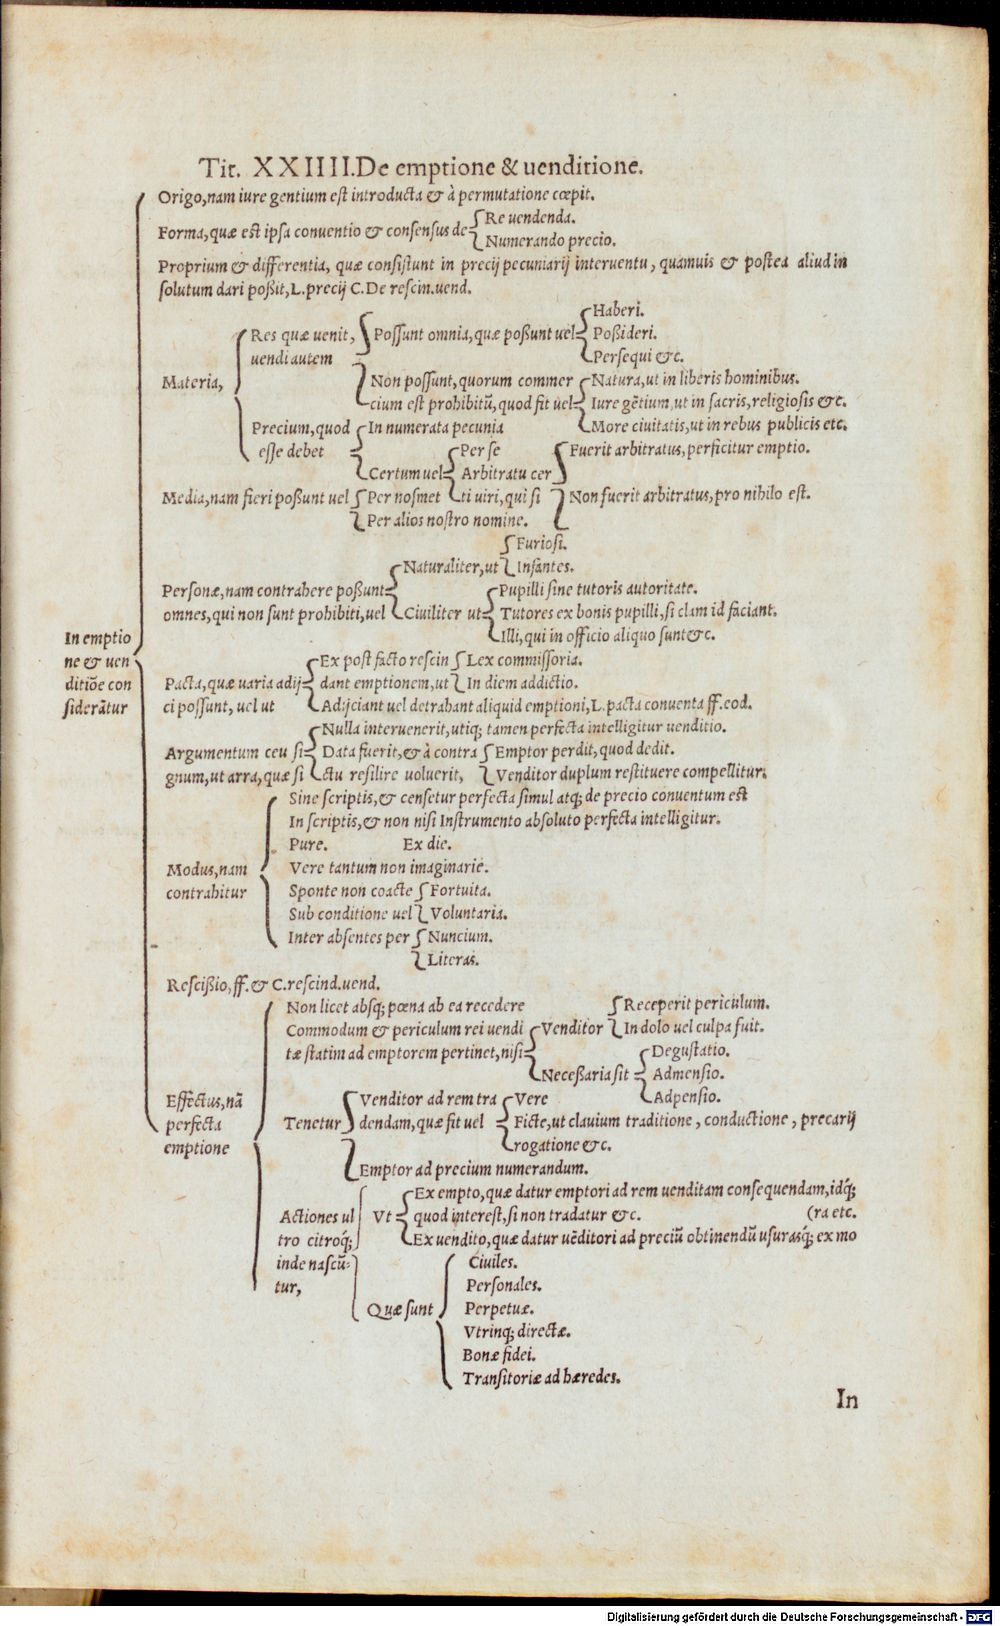 Tit. XXIIII. De emptione & uenditione.
Origo, nam iure gentium est introducta & à permutatione cœpit.
Forma, quæ est ipsa conuentio & consensus de
Re uendenda.
Numerando precio.
Proprium & differentia, quæ consistunt in precij pecuniarij interuentu, quamuis & postea aliud in
solutum dari poßit, L. precij C. De rescin. uend.
Materia,
Res quæ uenit,
uendi autem
Possunt omnia, quæ poßunt uel
Haberi.
Poßideri.
Persequi &c.
Non possunt, quorum commer
cium est prohibitũ, quod fit uel
Natura, ut in liberis hominibus.
Iure gẽtium, ut in sacris, religiosis &c.
More ciuitatis, ut in rebus publicis etc.
Precium, quod
esse debet
In numerata pecunia
Certum uel
Per se
Arbitratu cer
ti uiri, qui si
Fuerit arbitratus, perficitur emptio.
Non fuerit arbitratus, pro nihilo est.
Media, nam fieri poßunt uel
Per nosmet
Per alios nostro nomine.
Personæ, nam contrahere poßunt
omnes, qui non sunt prohibiti, uel
Naturaliter, ut
Furiosi.
Infantes.
Ciuiliter ut
Pupilli sine tutoris autoritate.
Tutores ex bonis pupilli, si clam id faciant.
Illi, qui in officio aliquo sunt &c.
In emptio
ne & uen
ditiõe con
siderãtur
Pacta, quæ uaria adij
ci possunt, uel ut
Ex post facto rescin
dant emptionem, ut
Lex commissoria.
In diem addictio.
Adijciant uel detrahant aliquid emptioni, L. pacta conuenta ff. eod.
Argumentum ceu si
gnum, ut arra, quæ si
Nulla interuenerit, utiq; tamen perfecta intelligitur uenditio.
Data fuerit, & à contra
ctu resilire uoluerit,
Emptor perdit, quod dedit.
Venditor duplum restituere compellitur.
Modus, nam
contrahitur
Sine scriptis, & censetur perfecta simul atq; de precio conuentum est
In scriptis, & non nisi Instrumento absoluto perfecta intelligitur.
Pure. Ex die.
Vere tantum non imaginarie.
Sponte non coacte
Sub conditione uel
Fortuita.
Voluntaria.
Inter absentes per
Nuncium.
Literas.
Rescißio, ff. & C. rescind. uend.
Effectus, nã
perfecta
emptione
Non licet absq; pœna ab ea recedere
Commodum & periculum rei uendi
tæ statim ad emptorem pertinet, nisi
Venditor
Receperit periculum.
In dolo uel culpa fuit.
Neceßaria sit
Degustatio.
Admensio.
Adpensio.
Tenetur
Venditor ad rem tra
dendam, quæ fit uel
Vere
Ficte, ut clauium traditione, conductione, precarij
rogatione &c.
Emptor ad precium numerandum.
Actiones ul
tro citroq́;
inde nascũ-
tur,
Vt
Ex empto, quæ datur emptori ad rem uenditam consequendam, idq́;
quod interest, si non tradatur &c. (ra etc.
Ex uendito, quæ datur uẽditori ad preciũ obtinendũ usurasq́; ex mo
Quæ sunt
Ciuiles.
Personales.
Perpetuæ.
Vtrinq; directæ.
Bonæ fidei.
Transitoriæ ad hæredes.
In
Digitalisierung gefördert durch die Deutsche Forschungsgemeinschaft - DFG